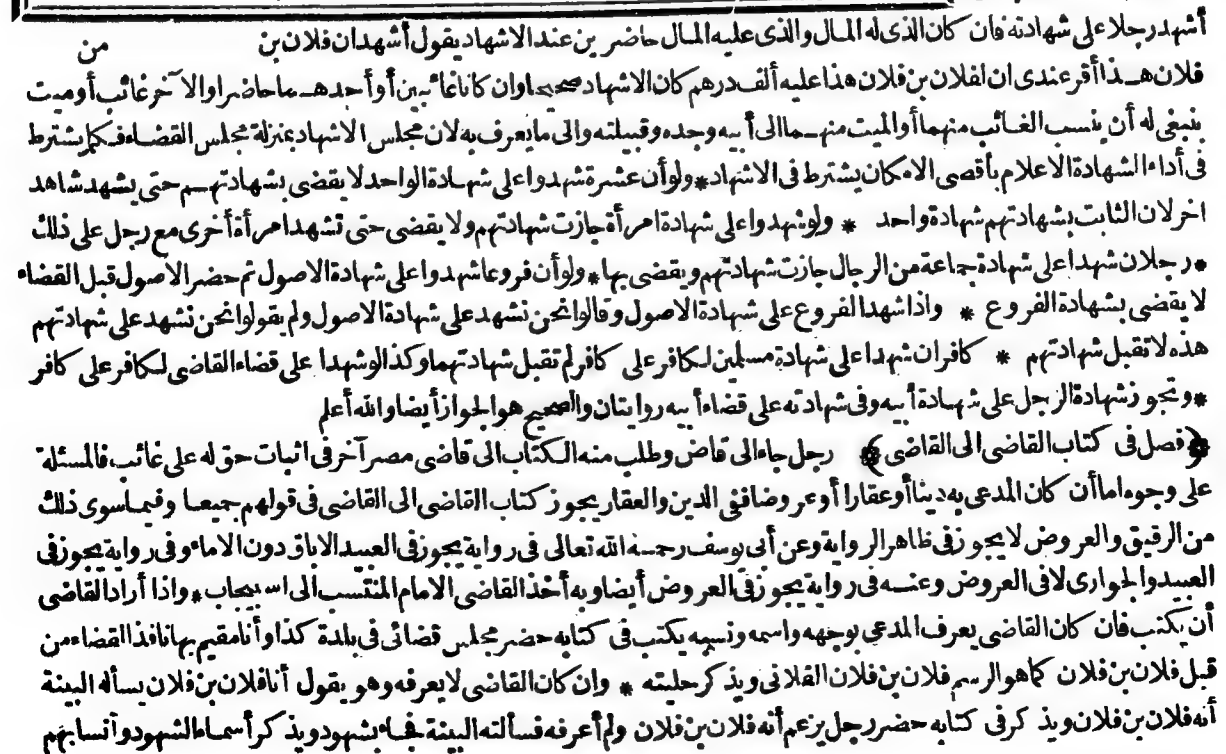 أشهد رجلا على شهادته فان كان الذى له المال والذى عليه المال حاضرين عند الاشهاد يقول أشهد ان فلان بن
من
فلان هذا أقر عندى ان لفلان بن فلان هذا عليه ألف درهم كان الاشهاد صحيحا وان كانا غائبين أو أحدهما حاضرا والآخر غائب أو ميت
ينبغى له أن ينسب الغائب منهما أو الميت منهما الى أبيه وجده وقبيلته والى ما يعرف به لان مجلس الاشهاد بمنزلة مجلس القضاء فكما يشترط
فى أداء الشهادة الاعلام بأقصى الامكان يشترط فى الاشهاد * ولو أن عشرة شهدوا على شهادة الواحد لا يقضى بشهادتهم حتى يشهد شاهد
اخر لان الثابت بشهادتهم شهادة واحد * ولو شهدوا على شهادة امرأة جازت شهادتهم ولا يقضى حتى تشهد امرأة أخرى مع رجل على ذلك
* رجلان شهدا على شهادة جماعة من الرجال جازت شهادتهم ويقضى بها * ولو أن فروعا شهدوا على شهادة الاصول ثم حضر الاصول قبل القضاء
لا يقضى بشهادة الفروع * واذا شهد الفروع على شهادة الاصول وقالوا نحن نشهد على شهادة الاصول ولم يقولوا نحن نشهد على شهادتهم
هذه لا تقبل شهادتهم * كافران شهدا على شهادة مسلمين لكافر على كافر لم تقبل شهادتهما وكذا لو شهدا على قضاء القاضى لكافر على كافر
* وتجوز شهادة الرجل على شهادة أبيه وفى شهادته على قضاء أبيه روايتان والصحيح هو الجواز أيضا والله أعلم
﴿فصل فى كتاب القاضى الى القاضى﴾ رجل جاء الى قاض وطلب منه الكتاب الى قاضى مصر آخر فى اثبات حق له على غائب فالمسئلة
على وجوه اما أن كان المدعى به دينا أو عقارا أو عروضا ففى الدين والعقار يجوز كتاب القاضى الى القاضى فى قولهم جميعا وفيما سوى ذلك
من الرقيق والعروض لا يجوز فى ظاهر الرواية وعن أبى يوسف رحمه الله تعالى فى رواية يجوز فى العبيد الاباق دون الاماء وفى رواية يجوز فى
العبيد والجوارى لا فى العروض وعنه فى رواية يجوز فى العروض أيضا وبه أخذ القاضى الامام المنتسب الى اسبيجاب * واذا أراد القاضى
أن يكتب فان كان القاضى يعرف المدعى بوجهه واسمه ونسبه يكتب فى كتابه حضر مجلس قضائى فى بلدة كذا وأنا مقيم بها نافذ القضاء من
قبل فلان بن فلان كما هو الرسم فلان بن فلان الفلانى ويذكر حليته * وان كان القاضى لا يعرفه وهو يقول أنا فلان بن فلان يسأله البينة
أنه فلان بن فلان ويذكر فى كتابه حضر رجل يزعم أنه فلان بن فلان ولم أعرفه فسألته البينة فجاء بشهود ويذكر أسماء الشهود وأنسابهم